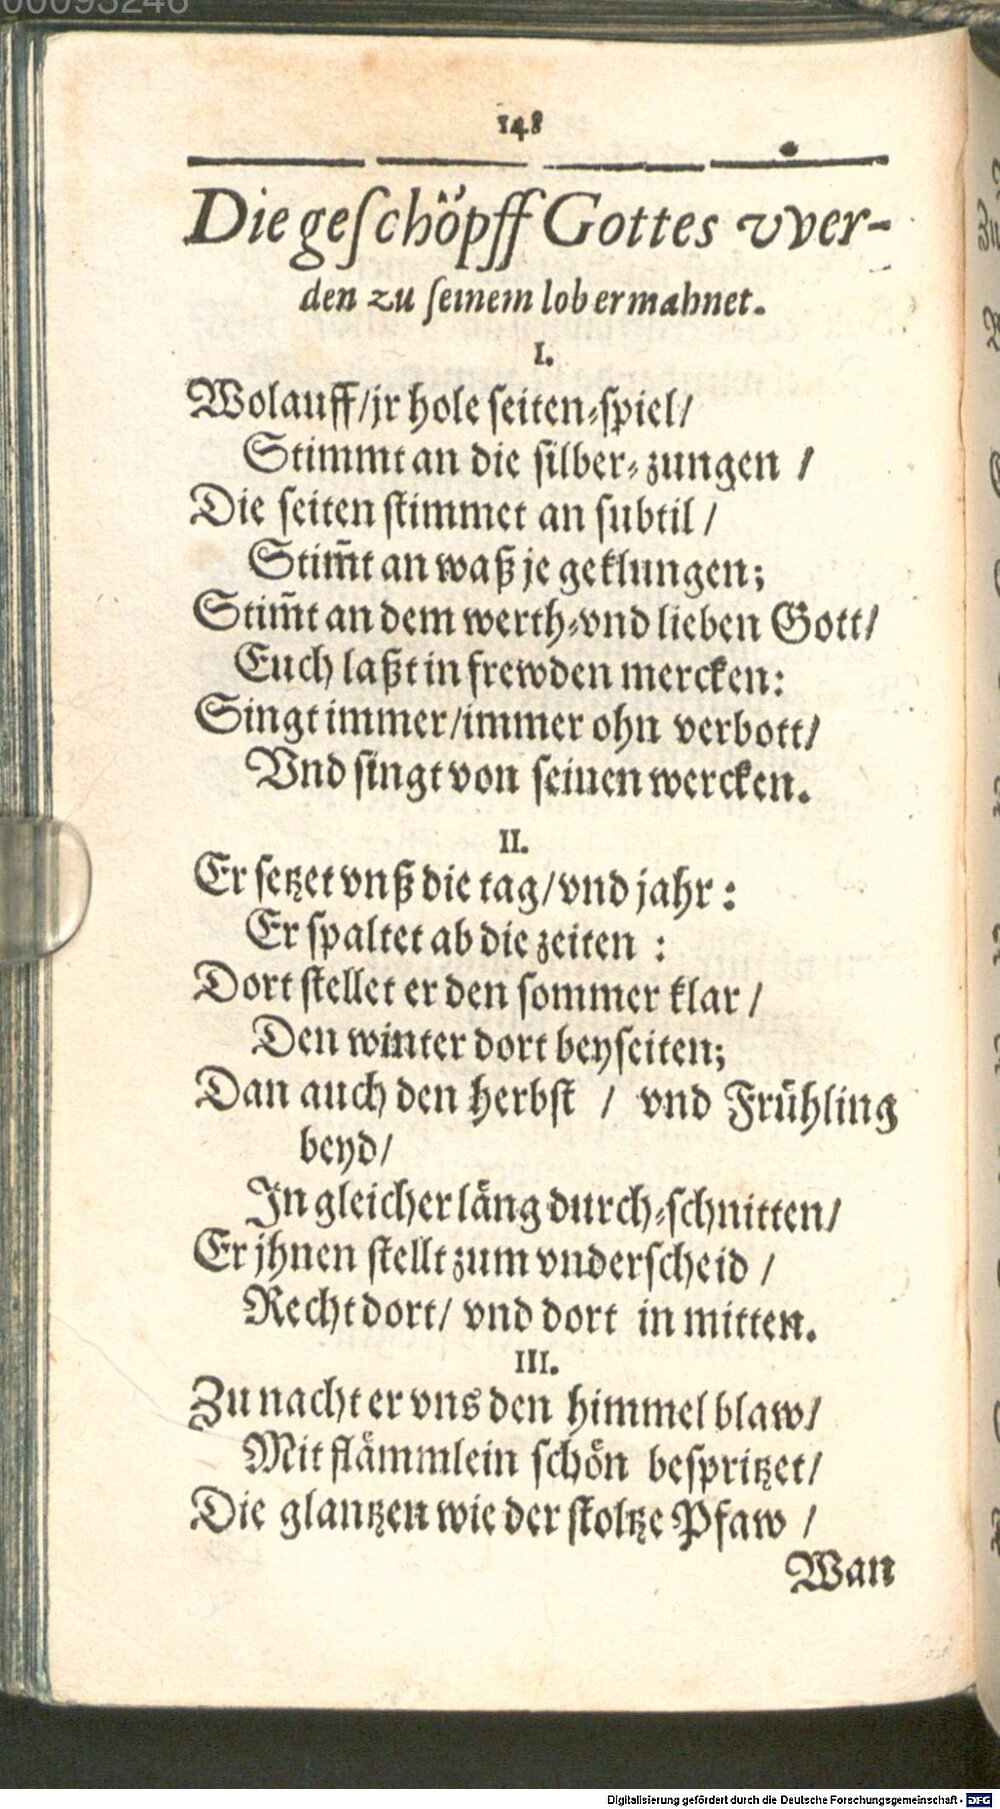 00093246
148
Die geſchöpff Gottes vver-
den zu ſeinem lob ermahnet.
I.
Wolauff/jr hole ſeiten-ſpiel/
Stimmt an die ſilber-zungen /
Die ſeiten ſtimmet an ſubtil /
Stim̃t an waß je geklungen;
Stim̃t an dem werth-vnd lieben Gott/
Euch laßt in frewden mercken:
Singt immer/immer ohn verbott/
Vnd ſingt von ſeinen wercken.
II.
Er ſetzet vnß die tag/vnd jahr :
Er ſpaltet ab die zeiten :
Dort ſtellet er den ſommer klar /
Den winter dort beyſeiten;
Dan auch den herbſt / vnd Frühling
beyd/
In gleicher läng durch-ſchnitten/
Er jhnen ſtellt zum vnderſcheid /
Recht dort/ vnd dort in mitten.
III.
Zu nacht er vns den himmel blaw/
Mit flämmlein ſchön beſpritzet/
Die glantzen wie der ſtoltze Pfaw /
Wan
Digitalisierung gefördert durch die Deutsche Forschungsgemeinschaft - DFG